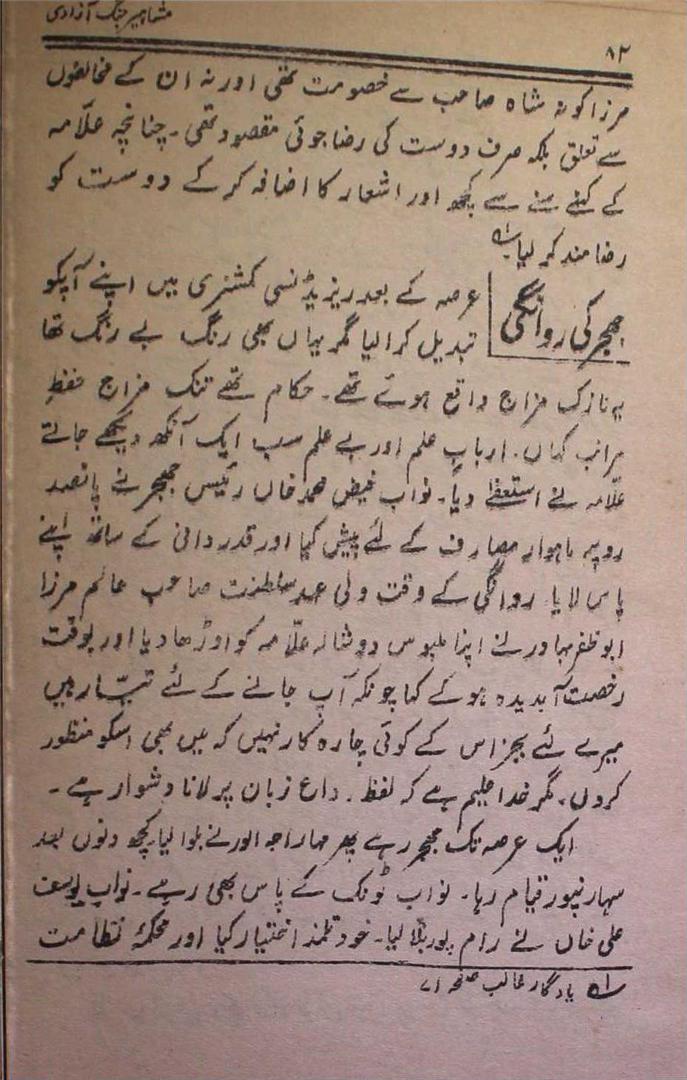 مشاہیر جنگ آزادی
۸۲
مرزا کو نہ شاہ صاحب سے خصومت تھی اور نہ ان کے مخالفوں
سے تعلق بلکہ صرف دوست کی رضا جوئی مقصود تھی۔ چنانچہ علّامہ
کے کہنے سننے سے کچھ اور اشعار کا اضافہ کر کے دوست کو
رضا مند کر لیا۔ لہ
جھجر کی روانگی
عرصہ کے بعد ریزیڈنسی کمشنری میں اپنے آپکو
تبدیل کرا لیا مگر یہاں بھی رنگ بے رنگ تھا
یہ نازک مزاج واقع ہوئے تھے۔ حکام تھے تنک مزاج حفظِ
مراتب کہاں۔ اربابِ علم اور بے علم سب ایک آنکھ دیکھے جاتے
علّامہ نے استعفےٰ دیا۔ نواب فیض محمد خاں رئیس جھجر نے پانصد
روپیہ ماہوار مصارف کے لئے پیش کیا اور قدر دانی کے ساتھ اپنے
پاس لایا روانگی کے وقت ولی عہد سلطنت صاحبِ عالم مرزا
ابو ظفر بہادر نے اپنا ملبوس دوشالہ علّامہ کو اوڑھا دیا اور بوقت
رخصت آبدیدہ ہو کے کہا چونکہ آپ جانے کے لئے تیّار ہیں
میرے لئے بجز اس کے کوئی چارہ کار نہیں کہ میں بھی اسکو منظور
کروں۔ مگر خدا علیم ہے کہ لفظ۔ داع زبان پر لانا دشوار ہے۔
ایک عرصہ تک جھجر رہے پھر مہاراجہ الور نے بلوا لیا کچھ دنوں بعد
سہارنپور قیام رہا۔ نواب ٹونک کے پاس بھی رہے۔ نواب یوسف
علی خاں نے رام پور بلا لیا۔ خود تلمذ اختیار کیا اور محکمۂ نظامت
لہ یادگار غالب صفحہ ۷۱